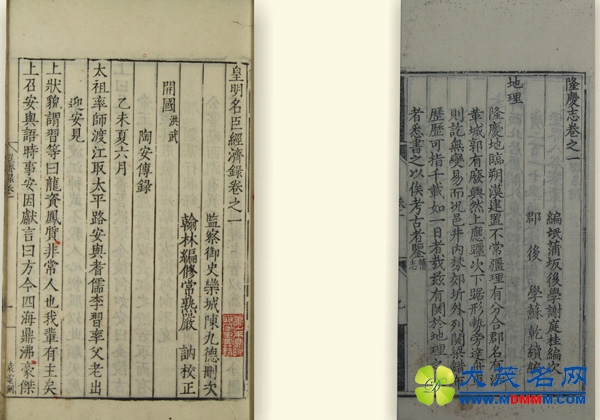 皇明名臣經濟錄卷之一
監察御史欒城陳九德刪次
翰林編修常熟嚴 訥校正
開國 洪武
陶安傳錄
乙未夏六月
太祖率師渡江取太平路安與耆儒李習率父老出
迎安見
上狀貌謂習等曰龍資鳳質非常人也我輩有主矣
上召安與語時事安因獻言曰方今四海鼎沸豪傑
隆慶志卷之一
編氓蒲坂後學謝庭桂編次
郡後學蘇乾續編
地理
隆慶地臨朔漠建置不常疆理有分合郡名有沿
革城郭有廢興然上應躔次下踞形勢旁達
則訖無變易而況邑井內
郊圻外列關梁
歷歷可指千載如一日者哉茲有關於地理
者悉書之以俟考古者鑒
大茂名网
www.MDMMM.com